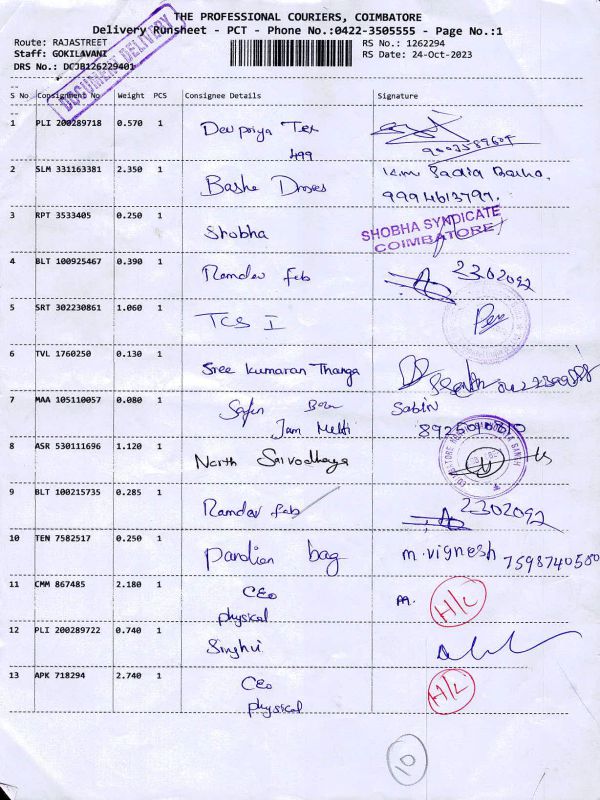 THE PROFESSIONAL COURIERS, COIMBATORE
Delivery Runsheet - PCT - Phone No.:0422-3505555 - Page No.:1
Route: RAJASTREET
RS No.: 1262294
Staff: GOKILAVANI
RS Date: 24-Oct-2023
DRS No.: DCJB126229401
DOCUMENT DELIVERY
S No Consignment No Weight PCS Consignee Details Signature
1 PLI 200289718 0.570 1 Devpriya Tex
499
2 SLM 331163381 2.350 1 Basha Dresses
9994613797.
3 RPT 3533405 0.250 1 Shobha SHOBHA SYNDICATE
COIMBATORE
4 BLT 100925467 0.390 1 Ramdev feb 2302092
5 SRT 302230861 1.060 1 TCS I
6 TVL 1760250 0.130 1 Sree Kumaran Thanga
7 MAA 105110057 0.080 1 Sabin
8 ASR 530111696 1.120 1 North Sarvodhaya
9 BLT 100215735 0.285 1 Ramdev feb 2302092
10 TEN 7582517 0.250 1 Pandian bag m. vignesh 7598740580
11 CMM 867485 2.180 1 CEO H/L
physical
12 PLI 200289722 0.740 1 Singhvi
13 APK 718294 2.740 1 CEO H/L
physical
10